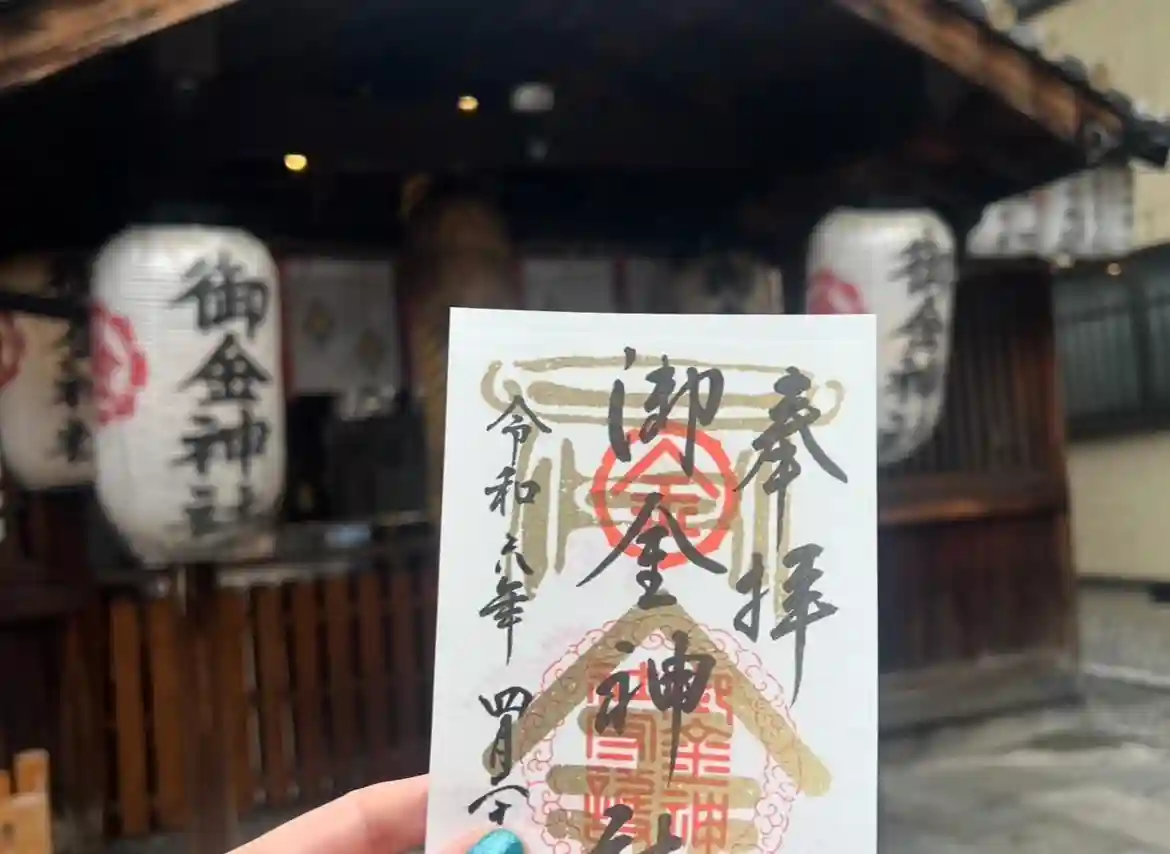 御金神社
御金神社
奉拝
御金神社
令和六年四月
金